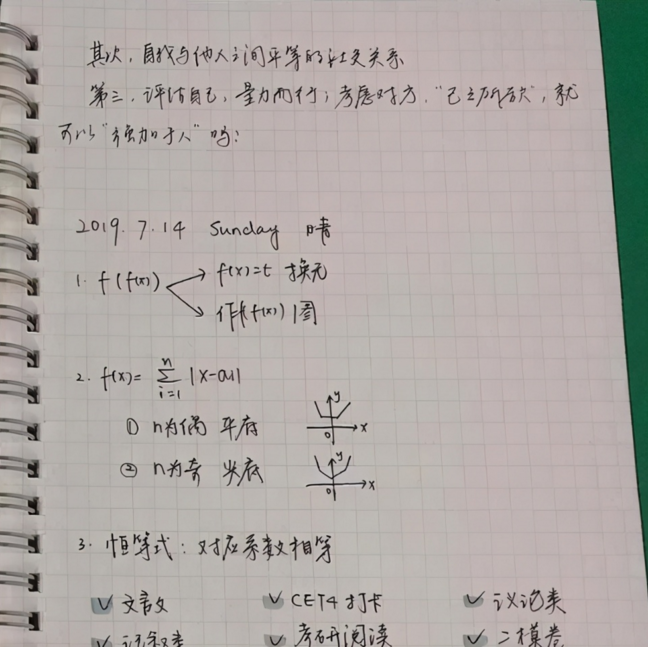 其次，自我与他人之间平等的社交关系
第三，评估自己，量力而行；考虑对方，“己之所欲”，就
可以“强加于人”吗？
2019.7.14 Sunday 晴
1. f(f(x))
f(x)=t 换元
作f(f(x))图
2. f(x)= n∑i=1 |x-ai|
① n为偶 平底
y
0 x
② n为奇 尖底
y
0 x
3. 恒等式：对应系数相等
文言文 CET4打卡 议论类
记叙类 考研阅读 二模卷